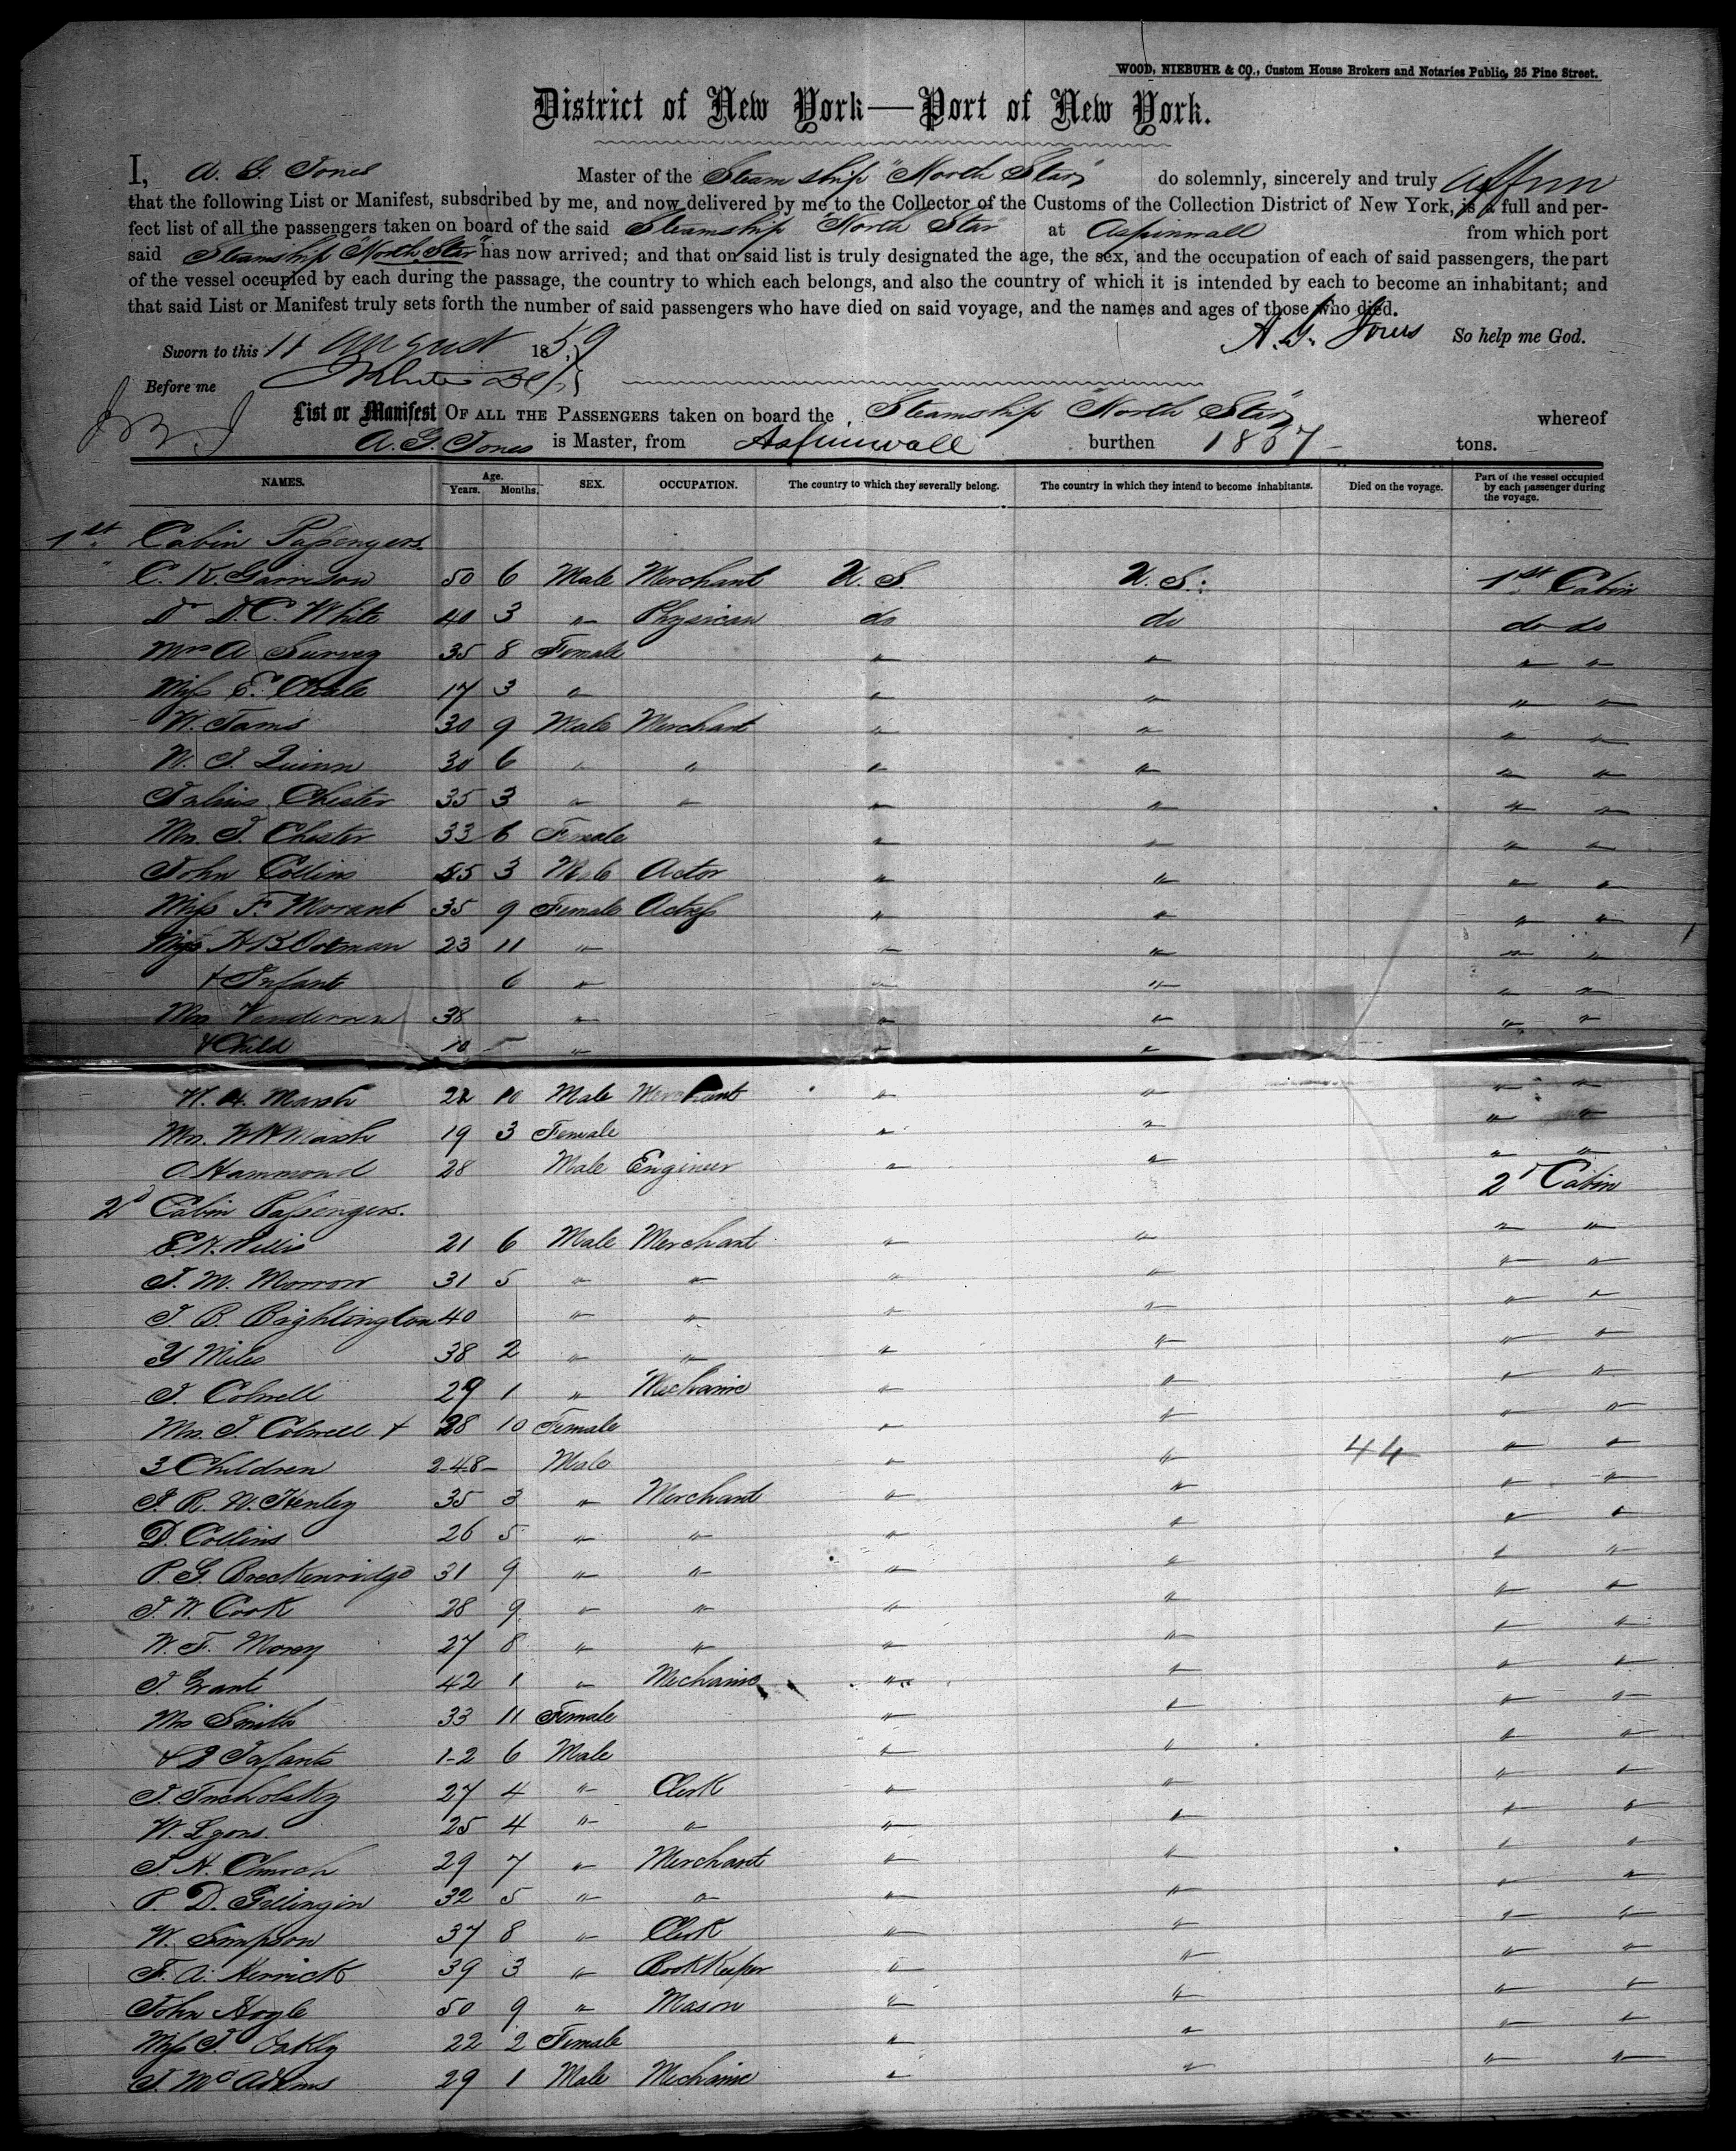 WOOD, NIEBUHR & CO., Custom House Brokers and Notaries Public, 25 Pine Street.
District of New York—Port of New York.
I, A. G. Jones Master of the Steam ship "North Star" do solemnly, sincerely and truly affirm
that the following List or Manifest, subscribed by me, and now delivered by me to the Collector of the Customs of the Collection District of New York, is a full and per-
fect list of all the passengers taken on board of the said Steamship "North Star" at Aspinwall from which port
said Steamship "North Star" has now arrived; and that on said list is truly designated the age, the sex, and the occupation of each of said passengers, the part
of the vessel occupied by each during the passage, the country to which each belongs, and also the country of which it is intended by each to become an inhabitant; and
that said List or Manifest truly sets forth the number of said passengers who have died on said voyage, and the names and ages of those who died.
A. G. Jones So help me God.
Sworn to this 11 August 1859
Before me
List or Manifest OF ALL THE PASSENGERS taken on board the Steamship "North Star" whereof
A. G. Jones is Master, from Aspinwall burthen 1867 tons.
NAMES. Age. Years. Months. SEX. OCCUPATION. The country to which they severally belong. The country in which they intend to become inhabitants. Died on the voyage. Part of the vessel occupied by each passenger during the voyage.
1st Cabin Passengers
C. K. Garrison 50 6 Male Merchant U. S. U. S. 1st Cabin
Dr D. C. White 40 3 " Physican do do do do
Mrs A 35 8 Female " " " "
Miss E. 17 3 " " " " "
W. Tams 30 9 Male Merchant " " " "
W. J. Quinn 30 6 " " " " " "
Julius Chester 35 3 " " " " " "
Mrs. J. Chester 33 6 Female " " " "
John Collins 45 3 Male Actor " " " "
Miss F. Morant 35 9 Female Actress " " " "
H B 23 11 " " " " "
& Infant 6 " " " " "
Mrs 38 " " " " "
& Child 10 " " " " "
W. H. Marsh 22 10 Male Merchant " " " "
Mrs. W H Marsh 19 3 Female " " " "
O. Hammond 28 Male Engineer " " " "
2d Cabin Passengers. 2d Cabin
E. W. Willis 21 6 Male Merchant " " " "
J. M. Morrow 31 5 " " " " " "
J. B. Bightington 40 " " " " " "
Y Miles 38 2 " " " " " "
J. Colwell 29 1 " Mechanic " " " "
Mrs. J. Colwell & 28 10 Female " " " "
3 Children 2-4-8- Male " " 44 " "
J. R. N. Henley 35 3 " Merchant " " " "
D. Collins 26 5 " " " " " "
P. G. Breckenridge 31 9 " " " " " "
J. W. Cook 28 9 " " " " " "
W. F. Morey 27 8 " " " " " "
J. Grant 42 1 " Mechanic " " " "
Mrs Smith 33 11 Female " " " "
& 2 Infants 1-2 6 Male " " " "
J. 27 4 " Clerk " " " "
W. Lyons. 25 4 " " " " " "
J. H. Church 29 7 " Merchant " " " "
P. D. Gillingin 32 5 " " " " " "
W. Simpson 37 8 " Clerk " " " "
F. A. Herrick 39 3 " Bookkeeper " " " "
John Hoyle 50 9 " Mason " " " "
Miss J. Oakly 22 2 Female " " " "
J. McAdams 29 1 Male Mechanic " " " "